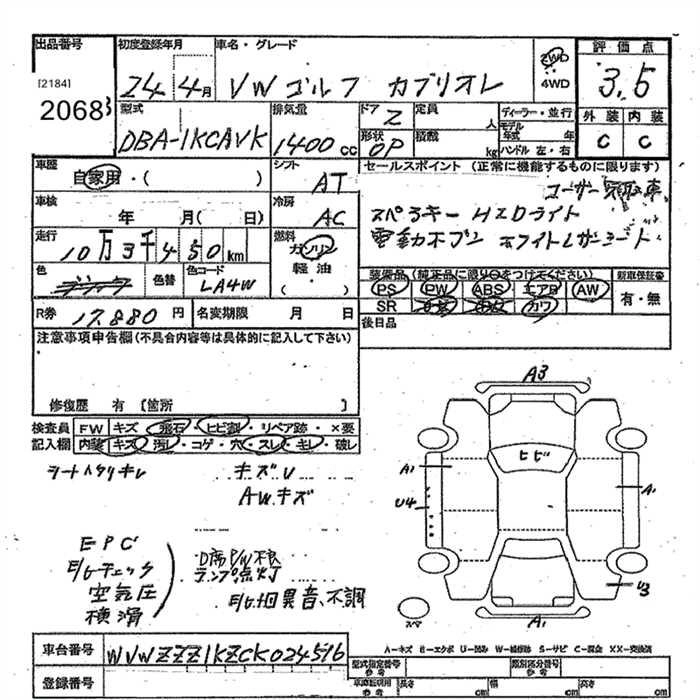 出品番号 初度登録年月 車名・グレード 評価点
[2184] 24年 4月 VW ゴルフ カブリオレ 2WD 4WD 3.5
2068
型式 排気量 ドア 定員 人 ディーラー・並行 外装 内装
DBA-1KCAVK 1400cc 2 形状 OP 積載 kg モデル年式 年 ハンドル 左・右 C C
車歴 シフト セールスポイント (正常に機能するものに限ります)
自家用・( ) AT ユーザー買取車
車検 冷房 スペアキー HIDライト
年 月( 日) AC 電動オープン ホワイトレザーシート
走行 燃料
10万3千450km ガソリン
軽油
・( )
色 色替 色コード 装備品 (純正品に限り○をつけてください) 新車保証書
LA4W PS PW ABS エアB AW 有・無
SR カワ
R券 17,880円 名変期限 月 日 後日品
注意事項申告欄(不具合内容等は具体的に記入して下さい)
修復歴 有 [箇所 ]
検査員 FW キズ・飛石・ヒビ割・リペア跡・×要
記入欄 内装 キズ・汚れ・コゲ・穴・スレ・キレ・破レ
シートヘタリキレ キズU
AWキズ
EPC
E/gチェック
空気圧
横滑
D席P/W不良
ランプ点灯
E/g回異音、不調
A3
ヒビ
A1 A1
U4
U3
スペア A1
A-キズ B-エクボ U-凹み W-補修跡 S-サビ C-腐食 XX-交換済
車台番号 WVWZZZ1KZCK024516
登録番号
型式指定番号 参考 類別区分番号 参考
車庫証明用 参考 長さ cm 幅 cm 高さ cm